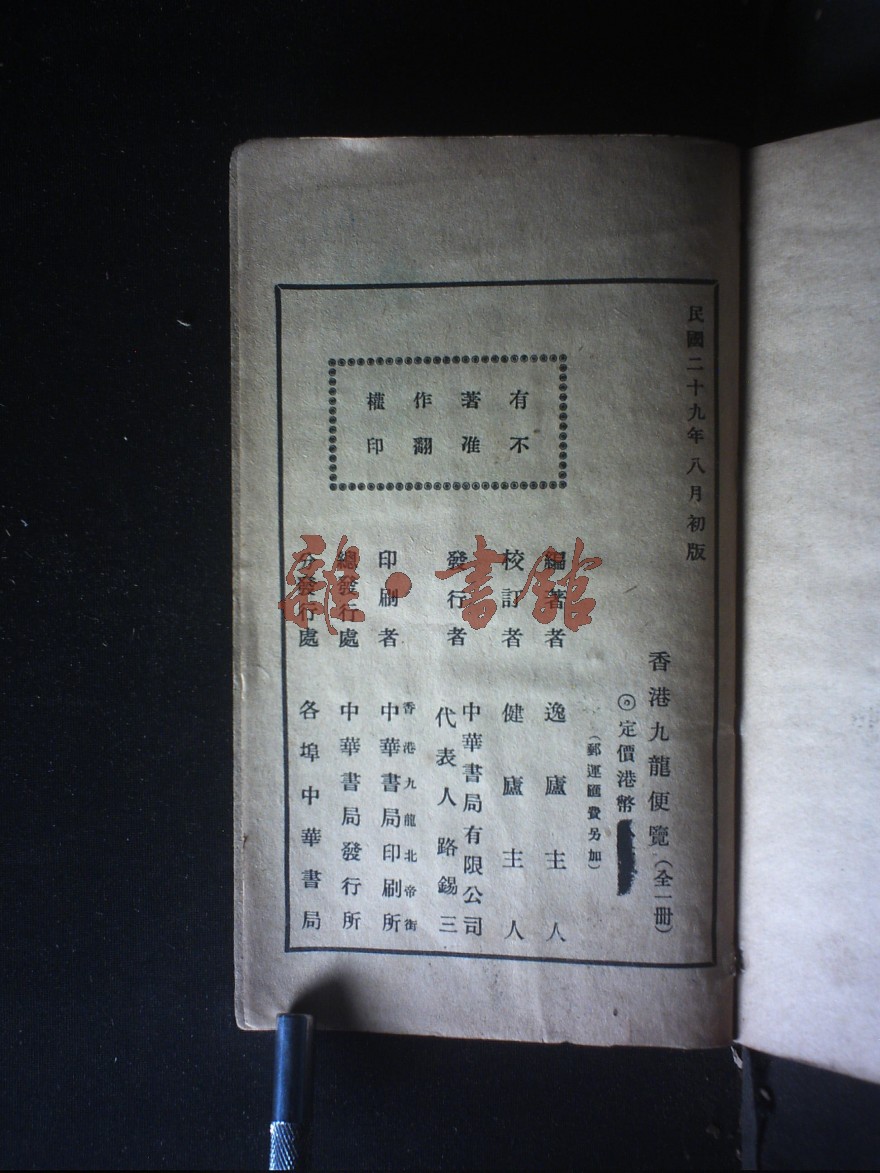 民國二十九年八月初版
香港九龍便覽(全一冊)
定價港幣
(郵運匯費另加)
有著作權
不准翻印
編著者 逸廬主人
校訂者 健廬主人
發行者 中華書局有限公司
代表人 路錫三
印刷者 香港九龍北帝街
中華書局印刷所
總發行處 中華書局發行所
分發行處 各埠中華書局
雜·書館